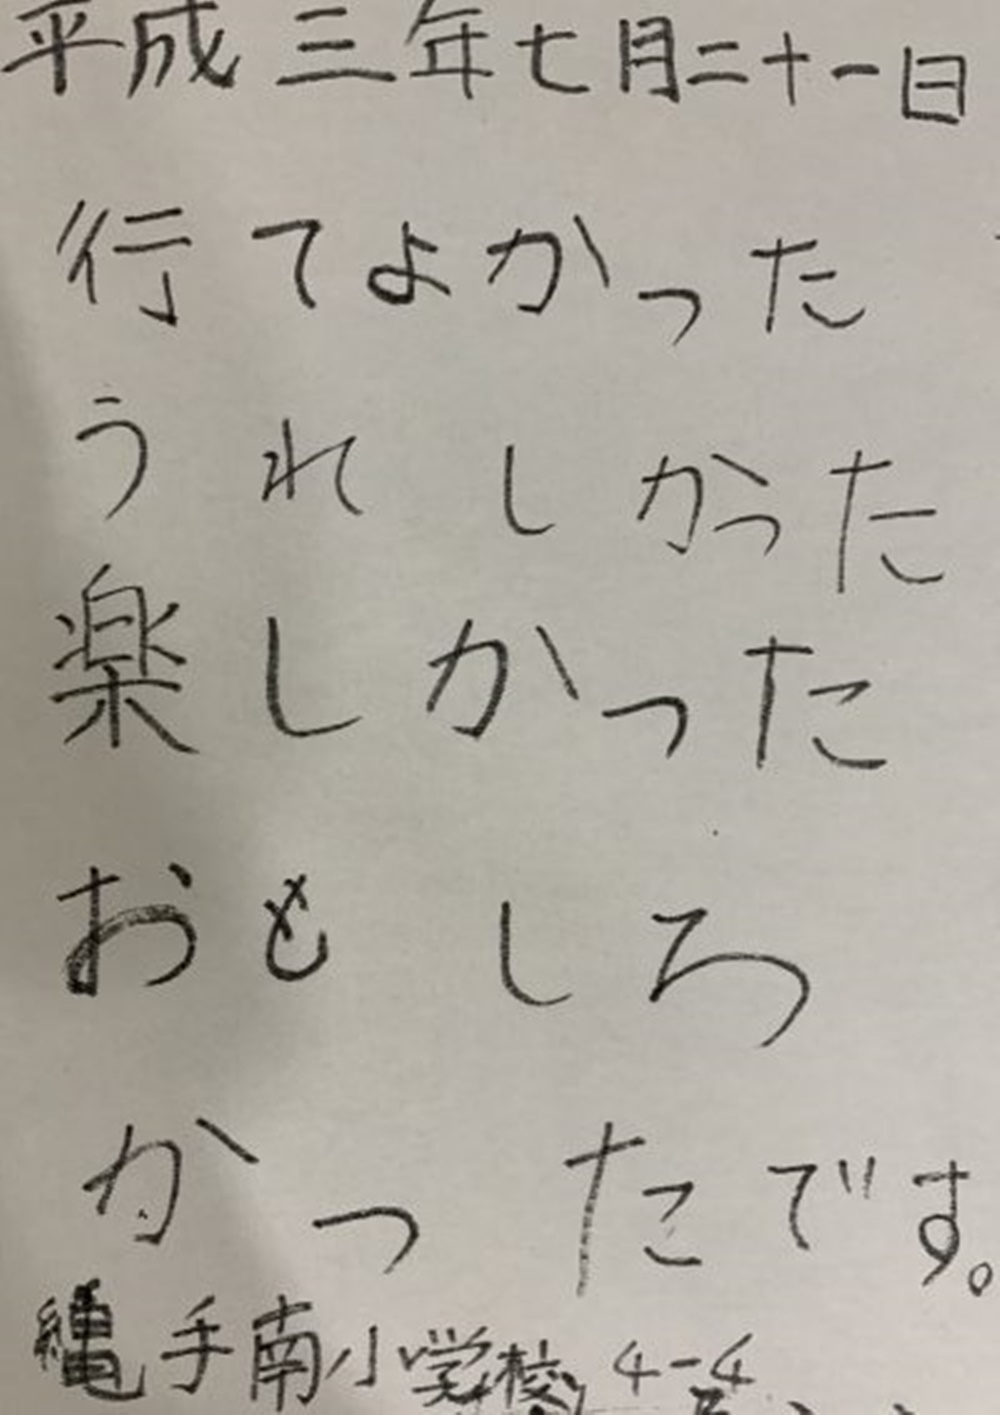 平成三年七月二十一日
行てよかった
うれしかった
楽しかった
おもしろ
かったです。
縄手南小学校 4-4